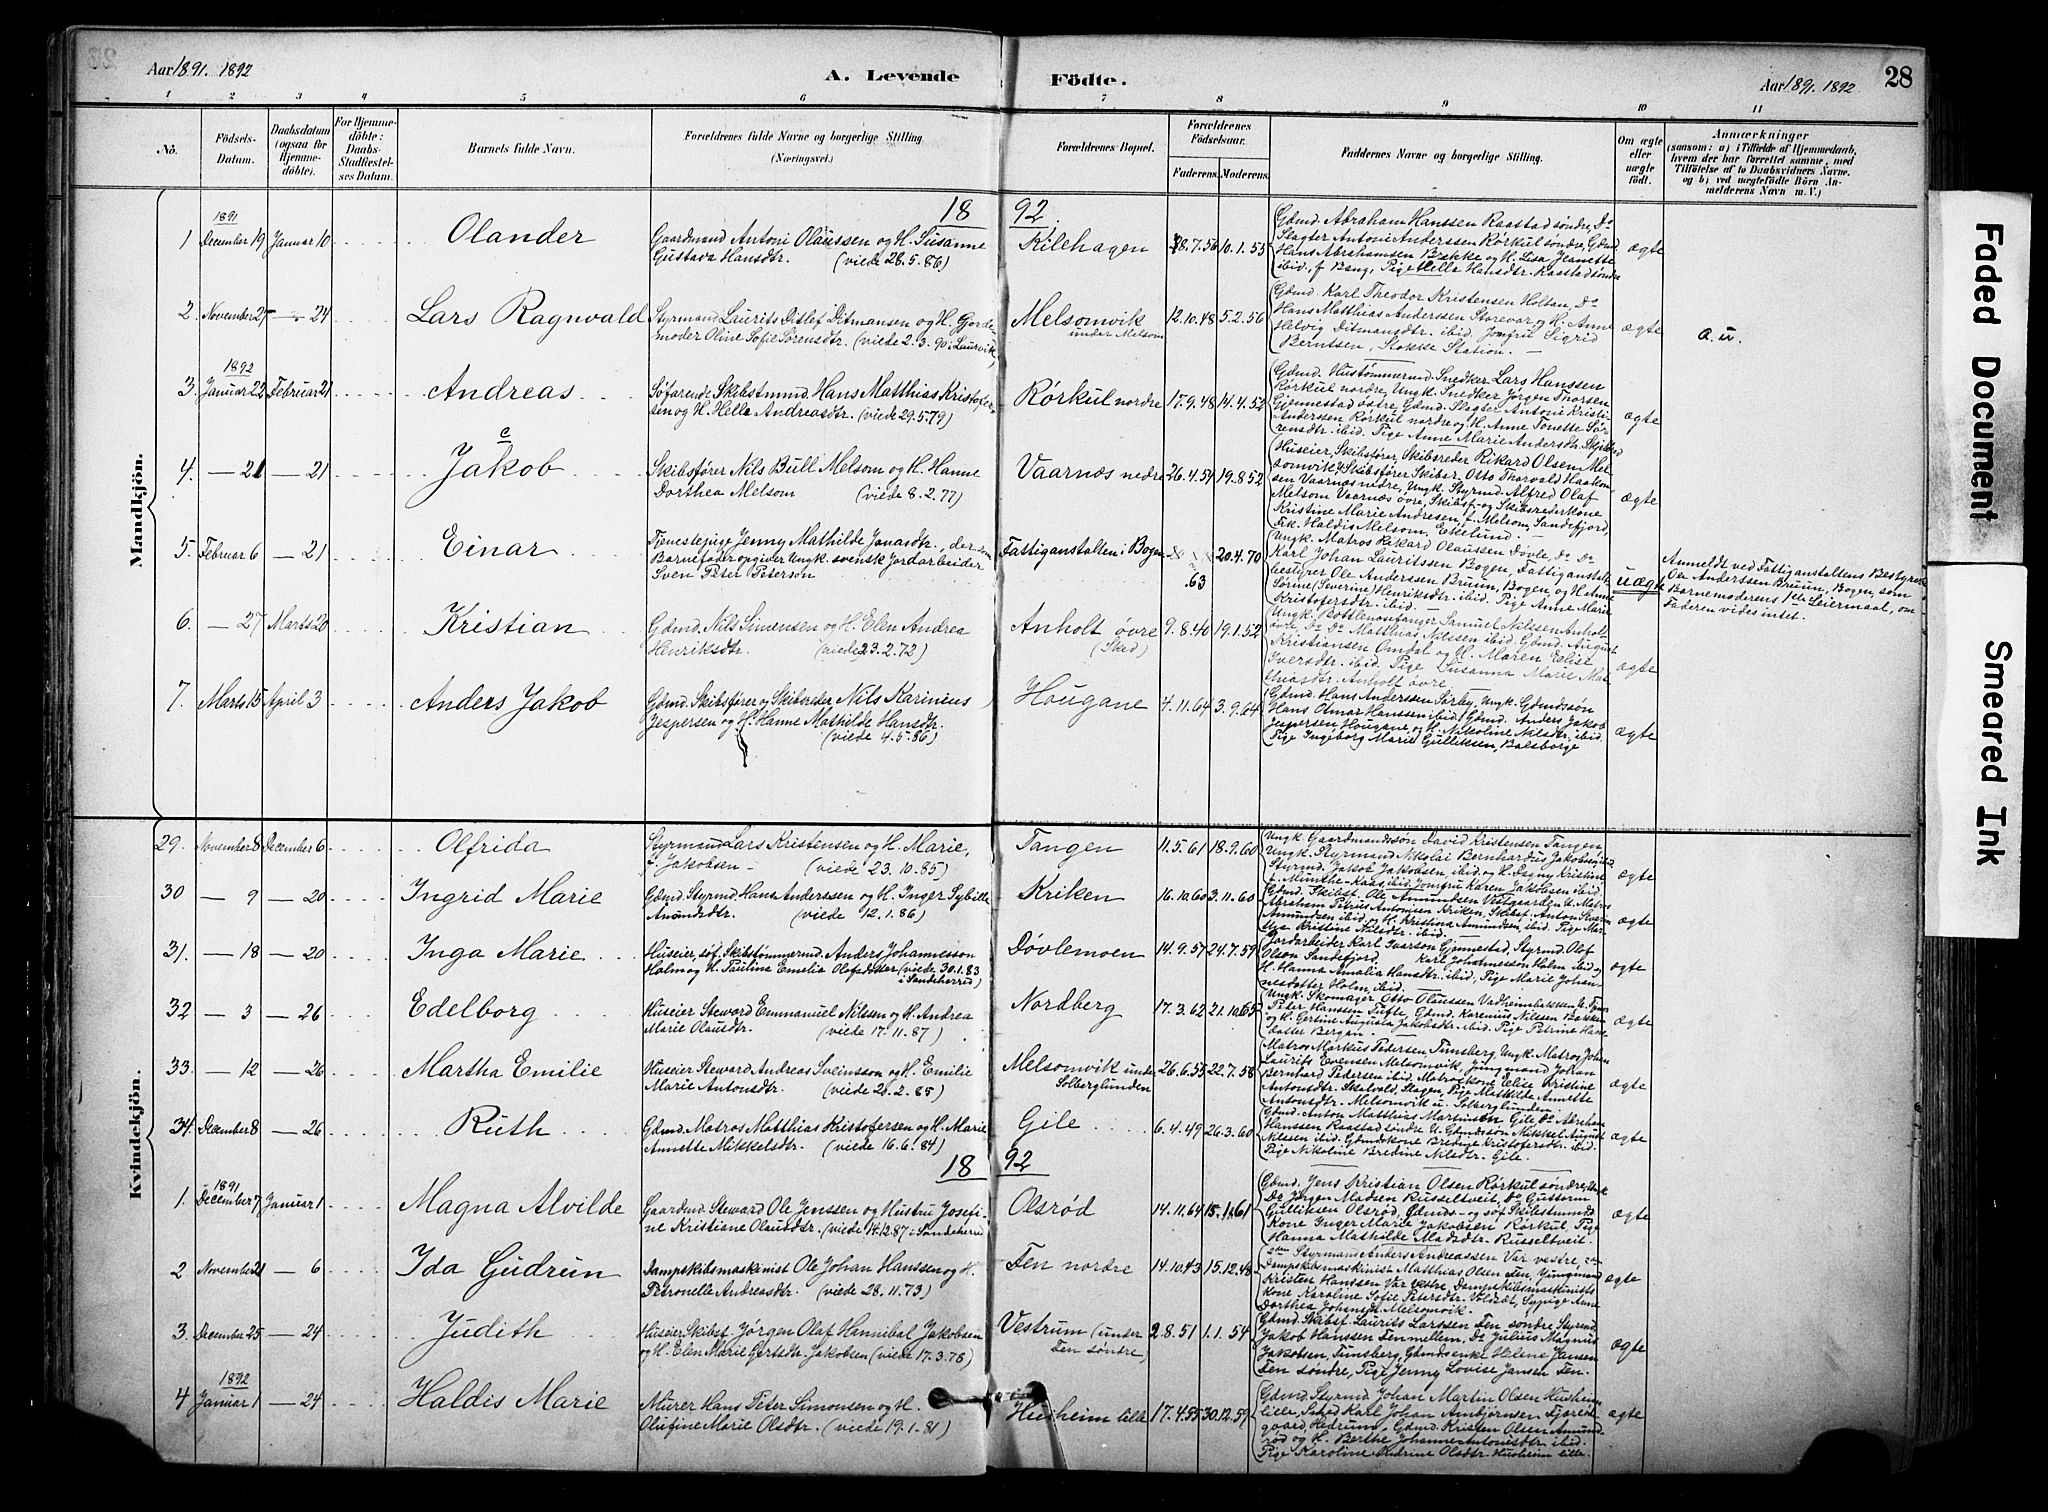 Aar 1891. 1892
A. Levende
Födte.
Aar 1891. 1892
28
1 2 3 4 5 6 7 8 9 10 11
No.
Födsels-Datum.
Daabsdatum (ogsaa for Hjemme-döbte).
For Hjemme-döbte: Daabs-Stadfæstel-ses Datum.
Barnets fulde Navn.
Forældrenes fulde Navne og borgerlige Stilling. (Næringsvei.)
Forældrenes Bopæl.
Forældrenes Födselsaar.
Faderens. Moderens.
Faddernes Navne og borgerlige Stilling.
Om ægte eller uægte födt.
Anmærkninger
(saasom: a) i Tilfælde af Hjemmedaab, hvem der har forrettet samme, med Tilföielse af to Daabsvidners Navne. og b) ved uægtefödte Börn An-melderens Navn m. V.)
Mandkjön.
18 92
1891
1 December 19 Januar 10 Olander
Gaardmand Antoni Olaussen og H. Susanne
Gustava Hansdtr. (viede 28.5.86)
Kilehagen 10.1.55
Gdmd. Abraham Hanssen Raastad søndre, Do
Slagter Antoni Anderssen Rørkul søndre, Gdmd.
Hans Abrahamsen Bække og H. Lisa Jeanette
ibid., f. Bang, Pige Hella Hansdtr. Raastad søndre
ægte
2. November 27 — 24 Lars Ragnvald
Styrmand Laurits Ditlef Ditmansen og H. Gjorde-
moder Oline Sofie Sørensdtr. (viede 2.3.90 i Laurvik)
Melsomvik under Melsom 12.10.48 5.2.56
Gdmd. Karl Theodor Kristensen Holtan, Do
Hans Matthias Anderssen Storevar og H. Anne
Helvig Ditmansdtr. ibid. Jomfru Sigrid
Berntsen, Stokke Station. —
ægte a.u.
1892
3. Januar 22 Februar 21 Andreas
Søfarende Skibstmmd. Hans Matthias Kristofer-
sen og H. Helle Andreasdtr. (viede 29.5.79)
Rørkul nordre 17.9.48 14.4.52
Gdmd. Hustømmermd. Snedker Lars Hanssen
Rørkul nordre, Ungk. Snedker Jørgen Thorsen
Gjennestad østre, Gdmd. Slagter Antoni Kristi-
Anderssen Rørkul nordre og H. Anne Tonette Sø-
rensdtr. ibid. Pige Anne Marie Andersdtr.
ægte
4. — 21 — 21 Jakob
c
Skibsfører Nils Bull Melsom og H. Hanne
Dorthea Melsom (viede 8.2.77)
Vaarnæs nedre 26.4.54 19.8.52
Huseier, Skibsfører, Skibsreder Rikard Olsen Mel-
somvik, Skibsfører Skibsr. Otto Thorvald Haakon-
sen Vaarnæs nedre, Ungk. Styrmd. Alfred Olaf
Melsom Vaarnæs øvre, Skibsf.- og Skibsrederkone
Kristine Marie Andresen, f. Melsom, Sandefjord,
Frk. Haldis Melsom, Ekelund. —
ægte
5. Februar 6 — 21 Einar
Tjenestepige Jenny Mathilde Jonasdtr., der som
Barnefader opgiver Ungk. svensk Jordarbeider
Sven Peter Peterson
Fattiganstalten i Bogen .63 20.4.70
Ungk. Matros Rikard Olaussen Døvle, Do Do
Karl Johan Lauritssen Bogen, Fattiganstalt-
bestyrer Ole Anderssen Bruun, Bogen, og H. Anne
Sørine (Severine) Henriksdtr. ibid. Pige Anne Marie
Kristofersdtr. ibid. —
uægte
Anmeldt ved Fattiganstaltens Bestyrer
Ole Anderssen Bruun, Bogen, som
Barnemoderens 1ste Leiermaal, om
Faderen vides intet.
6. — 27 Marts 20 Kristian
Gdmd. Nils Simensen og H. Elen Andrea
Henriksdtr. (viede 23.2.72)
Anholt øvre (Sked) 9.8.40 19.1.52
Ungk. Bottlenosfanger Samuel Nilsen Anholt
øvre, Do Do Matthias Nilssen ibid. Gdmd. August
Kristiansen Omdal og H. Maren Elise
Iversdtr. ibid. Pige Susanna Marie Mat-
thiasdtr. Anholt øvre
ægte
7. Marts 15 April 3 Anders Jakob
Gdmd. Skibsfører og Skibsreder Nils Karinius
Jespersen og H. Hanne Mathilde Hansdtr.
(viede 4.5.86)
Hougane 4.11.64 3.9.64
Gdmd. Hans Anderssen Sørby, Ungk. Gdmdssøn
Hans Otmar Hanssen ibid., Gdmd. Anders Jakob
Jespersen Hougane, og H. Nikoline Nilsdtr. ibid.
Pige Ingeborg Marie Gulliksen, Balsborge
ægte
Kvindekjön.
29. November 8 December 6 Olfrida
Styrmand Lars Kristensen og H. Marie,
f. Jakobsen — (viede 23.10.85)
Tangen 11.5.61 18.9.60
Ungk. Gaardmandssøn David Kristensen Tangen,
Ungk. Styrmand Nikolai Bernhardus Jakobsen ibid.
Styrmd. Jakob Jakobsen, ibid. og H. Dagny Kristine
f. Munthe-Kaas ibid. Jomfru Karen Jakobsen ibid.
ægte
30 — 9 — 20 Ingrid Marie
Gdmd. Styrmd. Hans Anderssen og H. Inger Sybille
Amundsdtr. (viede 12.1.86)
Kriken 16.10.60 3.11.60
Gdmd. Skibst. Ole Amundsen Vestgaarden, U. Matros
Abraham Petrius Antonisen Kriken, Skibsf. Anton Severin
Amundsen ibid. og H. Kristiana Amundsen, ibid. Pige Mar-
Kristine Nilsdtr. ibid.
ægte
31. — 18 — 20 Inga Marie
Huseier, søf. Skibstømmermd. Anders Johannesson
Holm og H. Paulina Emelia Olofsdotter (viede 30.1.83
i Sandeherred)
Døvlemoen 14.9.57 24.7.59
Jordarbeider Karl Ivarson Gjennestad, Styrmd. Olof
Olson Sandefjord, Karl Johannesson Holm ibid. og
H. Hanna Amalia Hansdtr. ibid., Pige Marie Johan-
nesdatter Holm, ibid.
ægte
32 — 3 — 26 Edelborg
Huseier Steward Emmanuel Nilssen og H. Andrea
Marie Olausdtr. (viede 17.11.87)
Nordberg 17.3.62 21.10.65
Ungk. Skomager Otto Olaussen Vadheimbakken, U. Tjener
Peter Hanssen Tufte, Gdmd. Karenius Nilsen Bakken
og H. Gertine Augusta Jakobsdtr. ibid. Pige Petrine Hans-
datter Bergan. —
ægte
33. — 12 — 26 Martha Emilie
Huseier Steward Andreas Sveinsson og H. Emilie
Marie Antonsdtr. (viede 20.2.85)
Melsomvik under Solberglunden 26.6.55 22.7.58
Matros Markus Pedersen, Tunsberg, Ungk. Matros Johan
Laurits Evensen Melsomvik, Jungmand Johan
Bernhard Pedersen ibid. Matroskone Elise Kristine
Antonsdtr. Skalvold, Slagen, Pige Mathilde Annette
Antonsdtr. Melsomvik u. Solberglunden
ægte
34. December 8 — 26 Ruth
Gdmd. Matros Matthias Kristofersen og H. Marie
Annette Mikkelsdtr. (viede 16.6.84)
Gile 6.4.49 26.3.60
Gdmd. Anton Matthias Martinsen Gile, Do Abraham
Hanssen Raastad søndre, U. Gdmdssøn Mikkel August
Nilsen ibid. Gdmdskone Bredine Kristofersdtr. ibid.
Pige Nikoline Bredine Nilsdtr. Gile.
ægte
18 92
1891
1. December 7 Januar 1 Magna Alvilde
Gaardmd. Steward Ole Jenssen og Hustru Josefi-
ne Kristiane Olausdtr. (viede 14.12.87 i Sandeherred)
Olsrød 14.11.64 15.1.61
Gdmd. Jens Kristian Olsen Rørkul søndre, Ungk.
Do Jørgen Madsen Russeltveit, Do Guttorm
Gulliksen Olsrød, Gdmds- og søf. Skibstmmds
Kone Inger Marie Jakobsen Rørkul, Pige
Hanna Mathilde Madsdtr. Russeltveit.
ægte
2 November 21 — 6 Ida Gudrun
Dampskibsmaskinist Ole Johan Hanssen og H.
Petronelle Andreasdtr. (viede 28.11.73)
Fen nordre 14.10.43 15.12.48
2den Styrmand Anders Andreassen Var vestre, 2den
Dampskibsmaskinist Matthias Olsen Fen, Jungmand
Kristen Hanssen Var vestre, Dampskibsmaskinists
Kone Karoline Sofie Petersdtr. Voldsdt, Sypige Anne
Dorthea Johansdtr. Melsomvik.
ægte
3. December 25 — 24 Judith
Huseier Skibsf. Jørgen Olaf Hannibal Jakobsen
og H. Elen Marie Gertsdtr. Jakobsen (viede 17.3.78)
Vestrum (under Fen søndre) 2.8.51 1.1.54
Gdmd. Skibsf. Laurits Larssen Fen søndre, Styrmd.
Jakob Hanssen Fen mellem, Do Julius Magnus
Jakobsen, Tunsberg, Gdmdsenke Helene Jansen
Fen søndre, Pige Jenny Lovise Jansen Fen.
ægte
1892
4 Januar 1 — 24 Haldis Marie
Murer Hans Peter Simonsen og H.
Olufine Marie Olsdtr. (viede 19.1.81)
Husheim lille 17.4.55 30.12.59
Gdmd. Styrmd. Johan Martin Olsen Husheim
lille, Smed Karl Johan Ambjørnsen Fjære-
gaard Hedrum, Gdmd. Kristen Olsen Amund-
rød og H. Berthe Johanne Antonisdtr. ibid.
Pige Karoline Kathrine Olsdtr. Husheim lille.
ægte
Faded Document
Smeared Ink